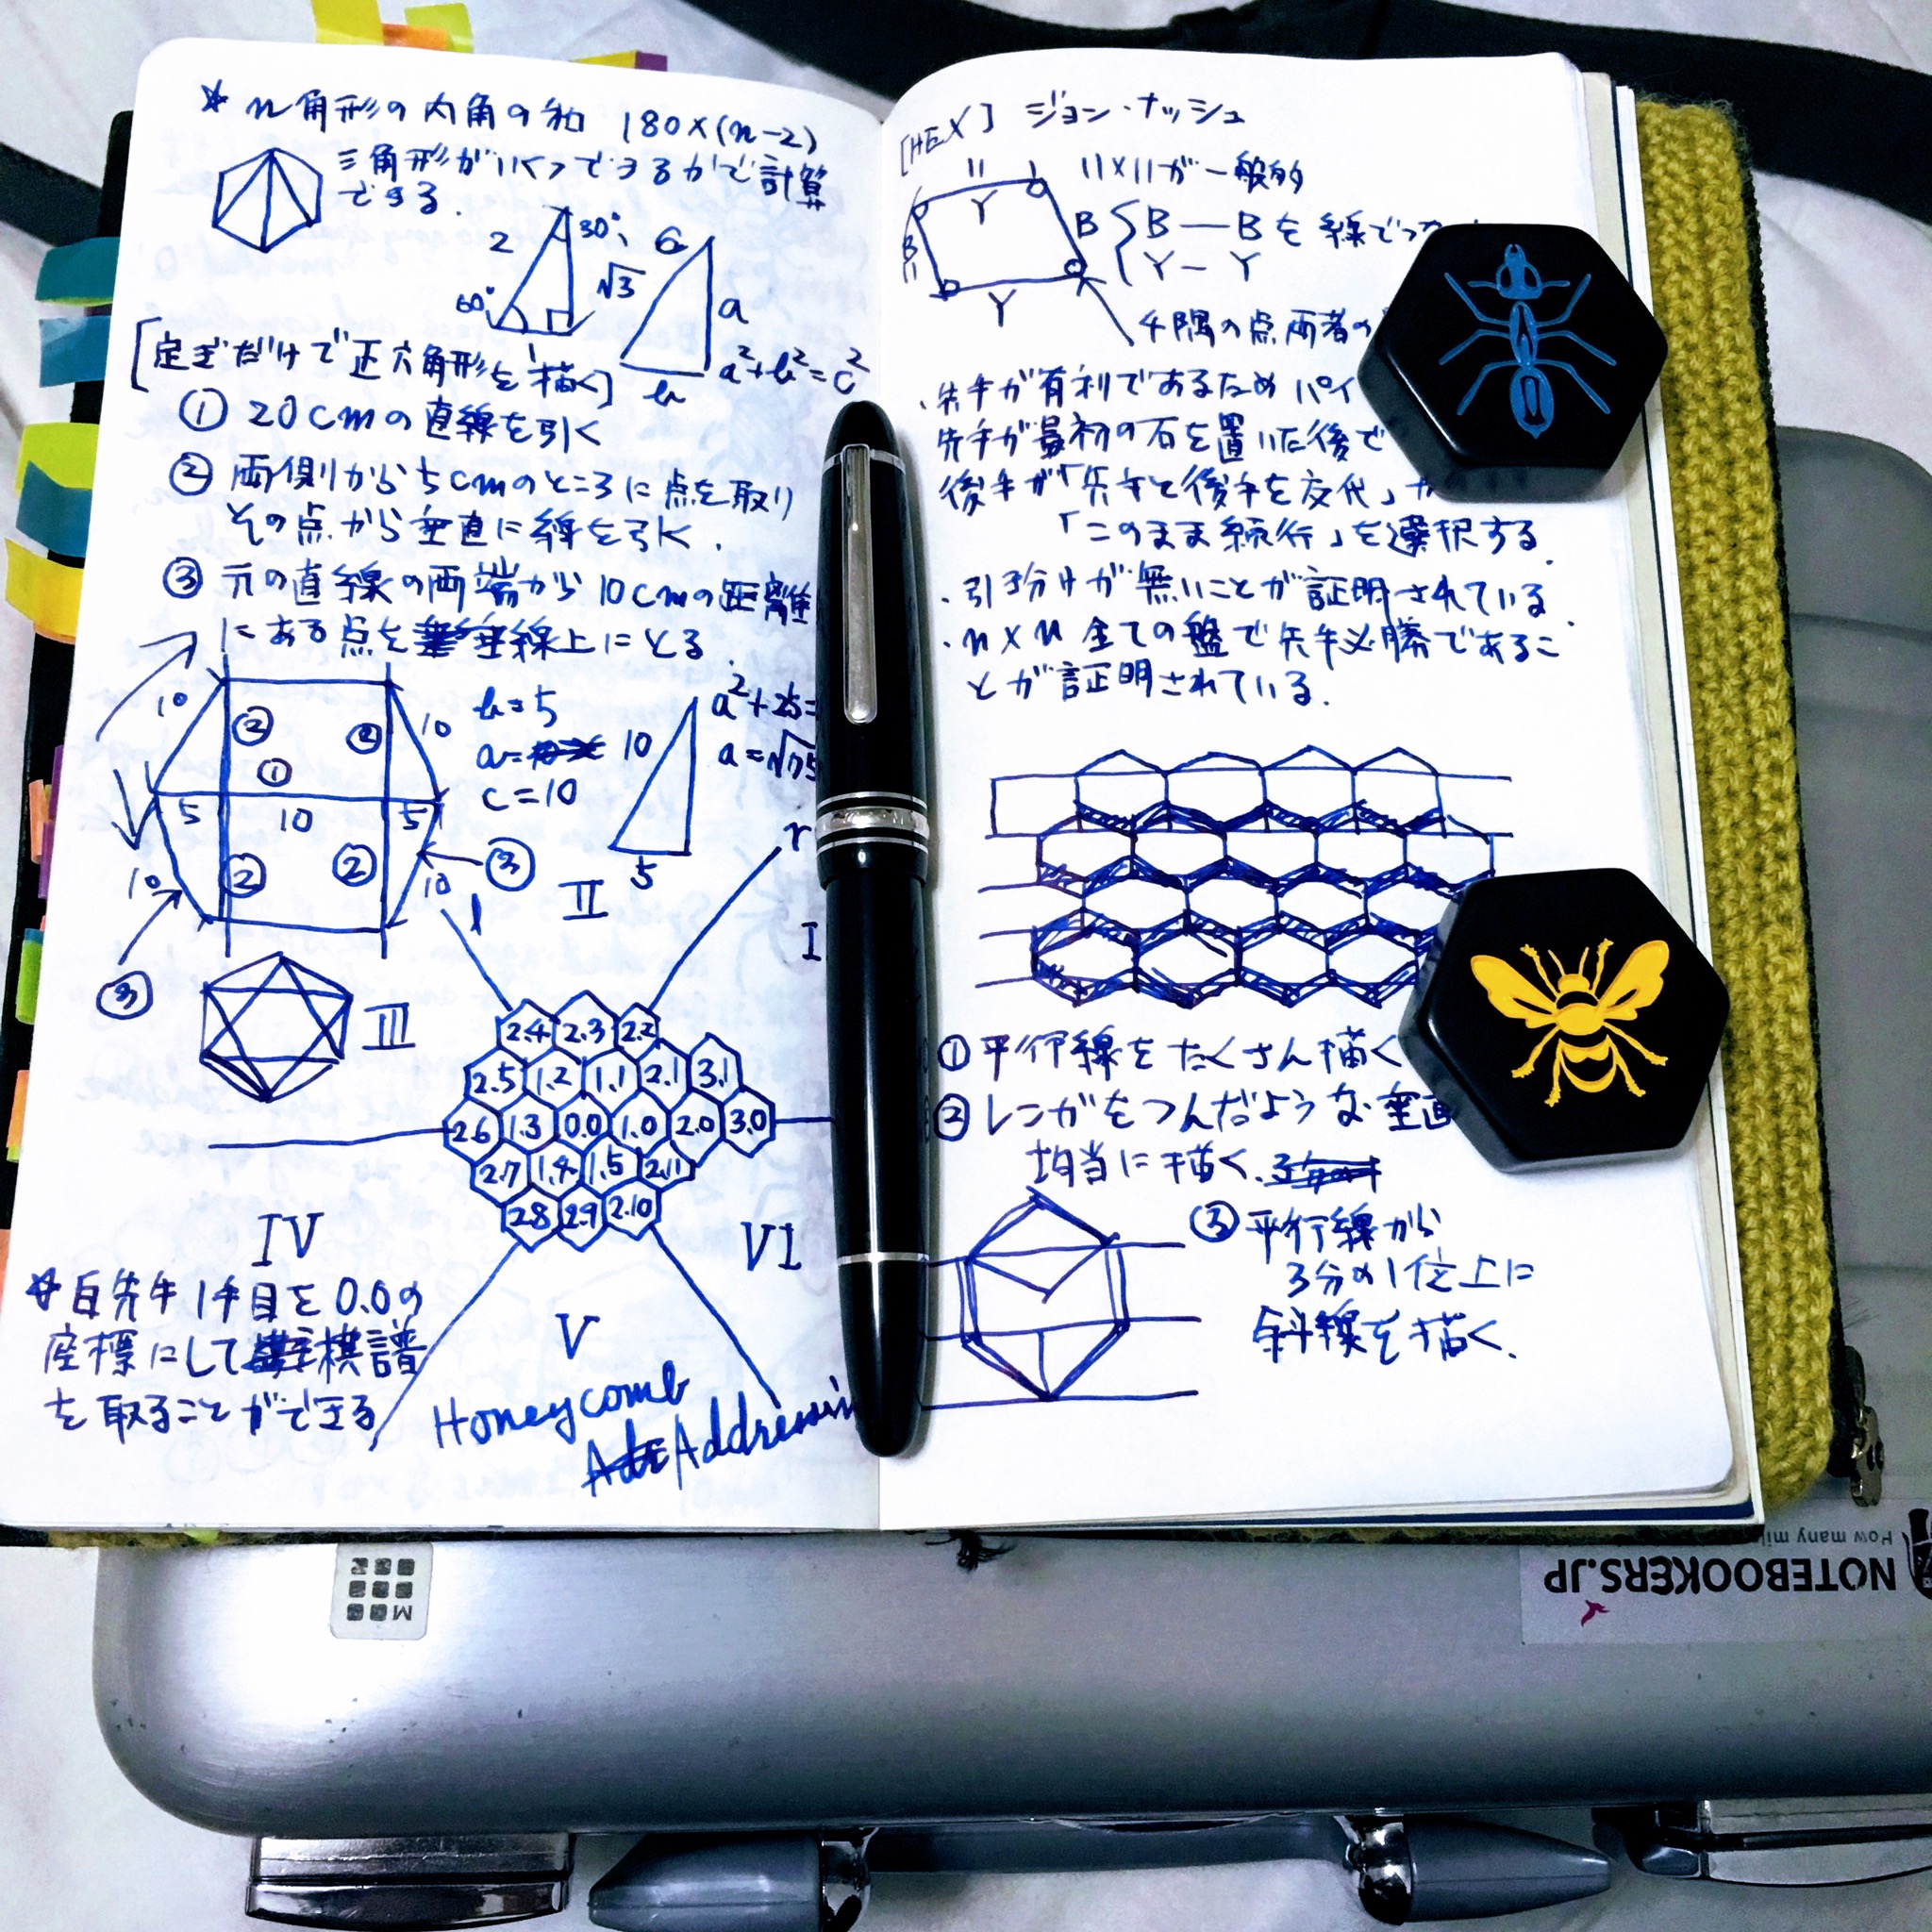 * n角形の内角の和 180×(n-2)
三角形がいくつできるかで計算
できる.
2 30° √3 60° 1
c a b a²+b²=c²
[定ぎだけで正六角形を描く]
① 20cmの直線を引く
② 両側から5cmのところに点を取り
その点から垂直に線を引く.
③ 元の直線の両端から10cmの距離
にある点を垂線上にとる.
10 ② ② 10
①
5 10 5
10 ② ② 10 ③
③
b=5
a=
c=10
10 5
a²+25=
a=√75
l II r I
III
2.4 2.3 2.2
2.5 1.2 1.1 2.1 3.1
2.6 1.3 0.0 1.0 2.0 3.0
2.7 1.4 1.5 2.11
2.8 2.9 2.10
IV V VI
* 白先手1手目を0.0の
座標にして棋譜
を取ることができる
Honeycomb
Addressin
[HEX] ジョン・ナッシュ
11 Y 11 B Y B
11×11が一般的
B—Bを線でつ
Y—Y
4隅の点両者の
・先手が有利であるためパイ
先手が最初の石を置いた後で
後手が「先手と後手を交代」か
「このまま続行」を選択する.
・引き分けが無いことが証明されている
・n×n全ての盤で先手必勝であるこ
とが証明されている.
① 平行線をたくさん描く
② レンガをつんだような垂直
均当に描く.
③ 平行線から
3分の1位上に
斜線を描く.
NOTEBOOKERS.JP
How many mil
M